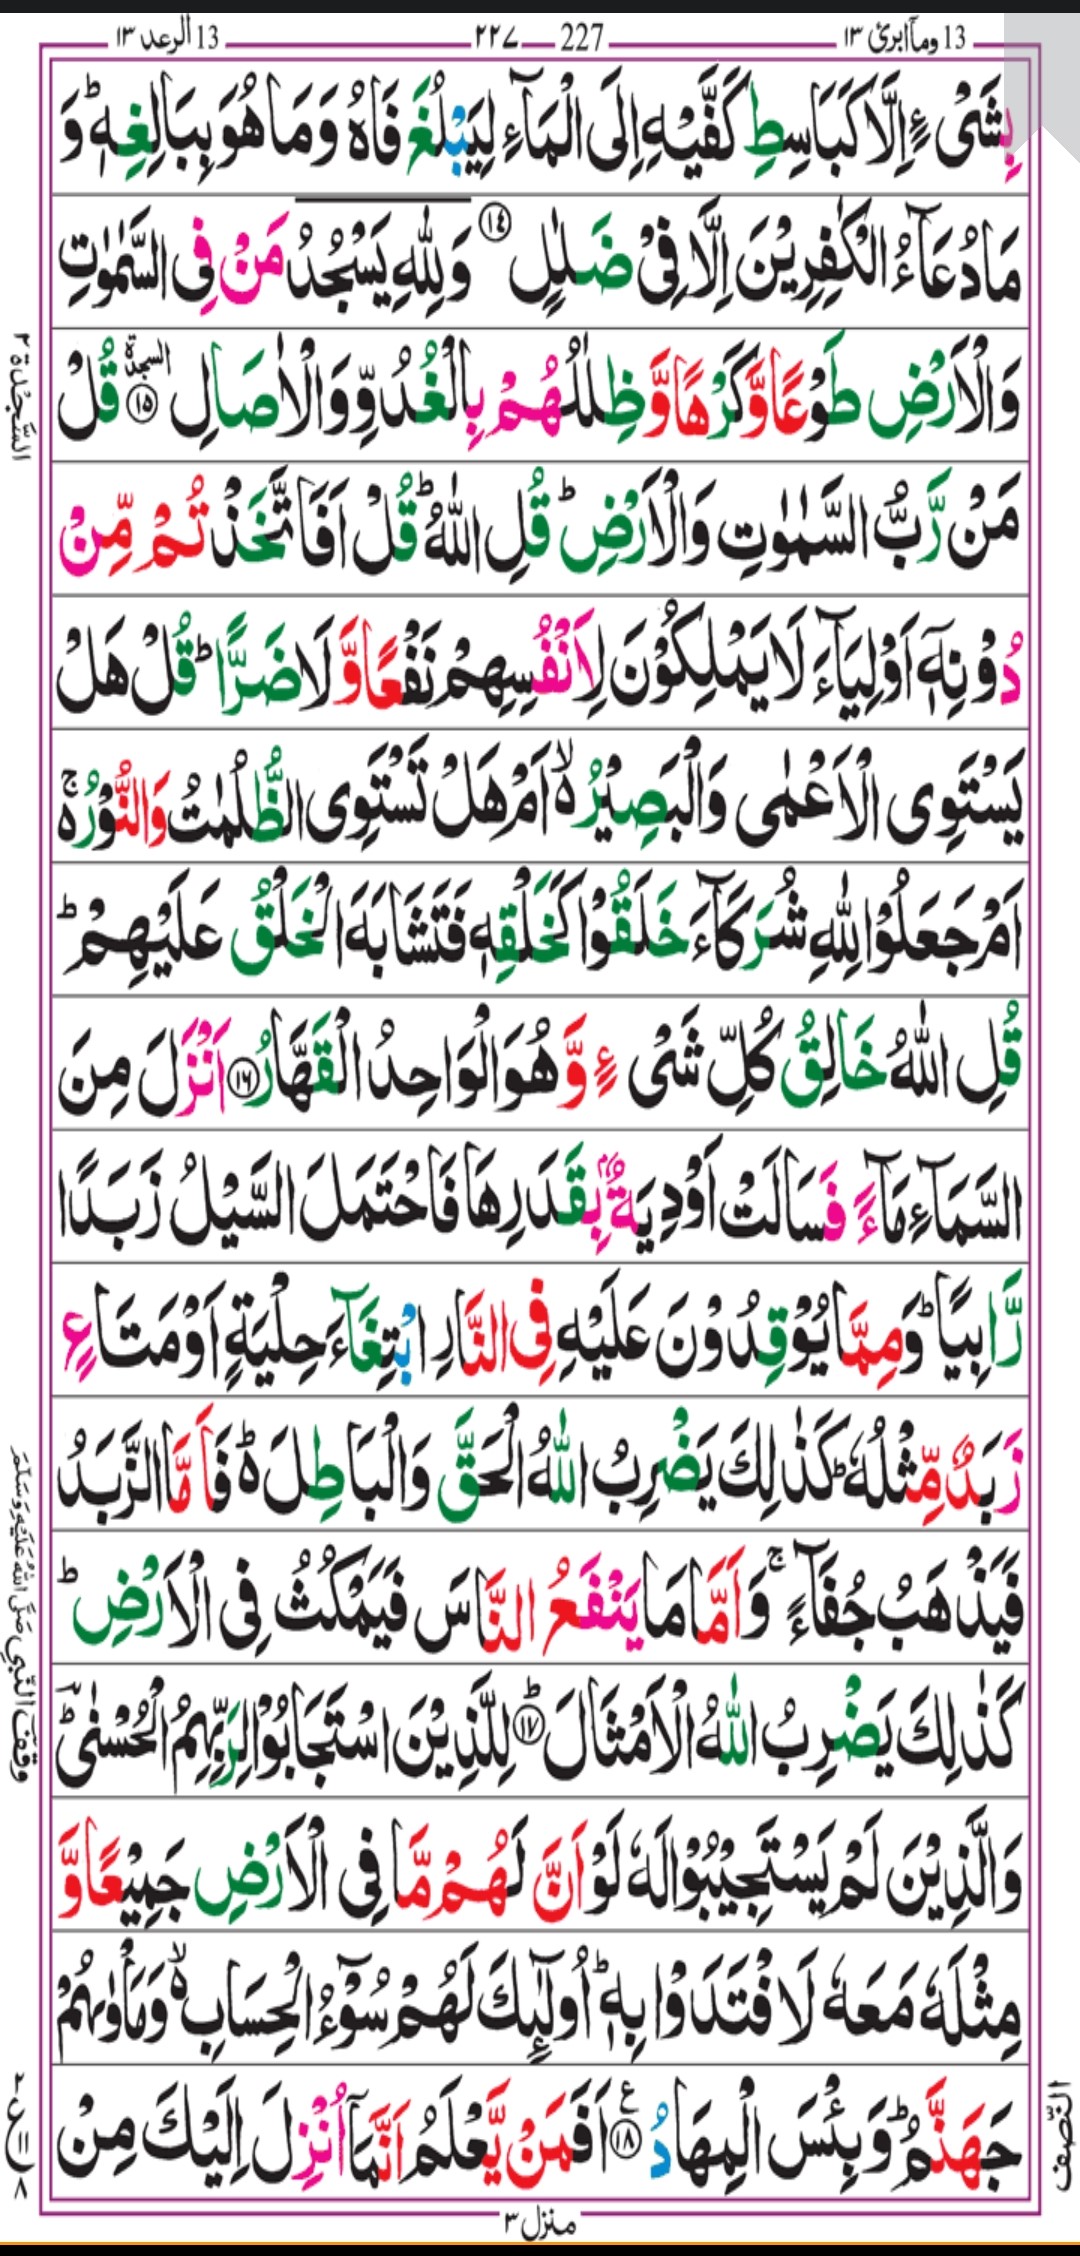 13 وماۤابرئ ١٣
227 ٢٢٧
13 الرعد ١٣
بِشَیْءٍ اِلَّا كَبَاسِطِ كَفَّیْهِ اِلَی الْمَآءِ لِیَبْلُغَ فَاهُ وَمَا هُوَ بِبَالِغِهٖ ؕ وَ
مَا دُعَآءُ الْكٰفِرِیْنَ اِلَّا فِیْ ضَلٰلٍ ١٤ وَلِلّٰهِ یَسْجُدُ مَنْ فِی السَّمٰوٰتِ
وَالْاَرْضِ طَوْعًا وَّكَرْهًا وَّظِلٰلُهُمْ بِالْغُدُوِّ وَالْاٰصَالِ السجدة ١٥ قُلْ
مَنْ رَّبُّ السَّمٰوٰتِ وَالْاَرْضِ ؕ قُلِ اللّٰهُ ؕ قُلْ اَفَاتَّخَذْتُمْ مِّنْ
دُوْنِهٖۤ اَوْلِیَآءَ لَا یَمْلِكُوْنَ لِاَنْفُسِهِمْ نَفْعًا وَّلَا ضَرًّا ؕ قُلْ هَلْ
یَسْتَوِی الْاَعْمٰی وَالْبَصِیْرُ ۙ۬ اَمْ هَلْ تَسْتَوِی الظُّلُمٰتُ وَالنُّوْرُ ۚ۬
اَمْ جَعَلُوْا لِلّٰهِ شُرَكَآءَ خَلَقُوْا كَخَلْقِهٖ فَتَشَابَهَ الْخَلْقُ عَلَیْهِمْ ؕ
قُلِ اللّٰهُ خَالِقُ كُلِّ شَیْءٍ وَّهُوَ الْوَاحِدُ الْقَهَّارُ ١٦ اَنْزَلَ مِنَ
السَّمَآءِ مَآءً فَسَالَتْ اَوْدِیَةٌۢ بِقَدَرِهَا فَاحْتَمَلَ السَّیْلُ زَبَدًا
رَّابِیًا ؕ وَمِمَّا یُوْقِدُوْنَ عَلَیْهِ فِی النَّارِ ابْتِغَآءَ حِلْیَةٍ اَوْ مَتَاعٍ
زَبَدٌ مِّثْلُهٗ ؕ كَذٰلِكَ یَضْرِبُ اللّٰهُ الْحَقَّ وَالْبَاطِلَ ۬ؕ فَاَمَّا الزَّبَدُ
فَیَذْهَبُ جُفَآءً ۚ وَاَمَّا مَا یَنْفَعُ النَّاسَ فَیَمْكُثُ فِی الْاَرْضِ ؕ
كَذٰلِكَ یَضْرِبُ اللّٰهُ الْاَمْثَالَ ؕ ١٧ لِلَّذِیْنَ اسْتَجَابُوْا لِرَبِّهِمُ الْحُسْنٰی ؔؕ
وَالَّذِیْنَ لَمْ یَسْتَجِیْبُوْا لَهٗ لَوْ اَنَّ لَهُمْ مَّا فِی الْاَرْضِ جَمِیْعًا وَّ
مِثْلَهٗ مَعَهٗ لَافْتَدَوْا بِهٖ ؕ اُولٰٓىِٕكَ لَهُمْ سُوْٓءُ الْحِسَابِ ۙ۬ وَمَاْوٰىهُمْ
جَهَنَّمُ ؕ وَبِئْسَ الْمِهَادُ ١٨ ع اَفَمَنْ یَّعْلَمُ اَنَّمَاۤ اُنْزِلَ اِلَیْكَ مِنْ
منزل ٣
السَّجْدَة ٢
وقف النبی صَلَّی اللّٰهُ عَلَیْهِ وَسَلَّمَ
٢ ع ١١ ٨
النصف